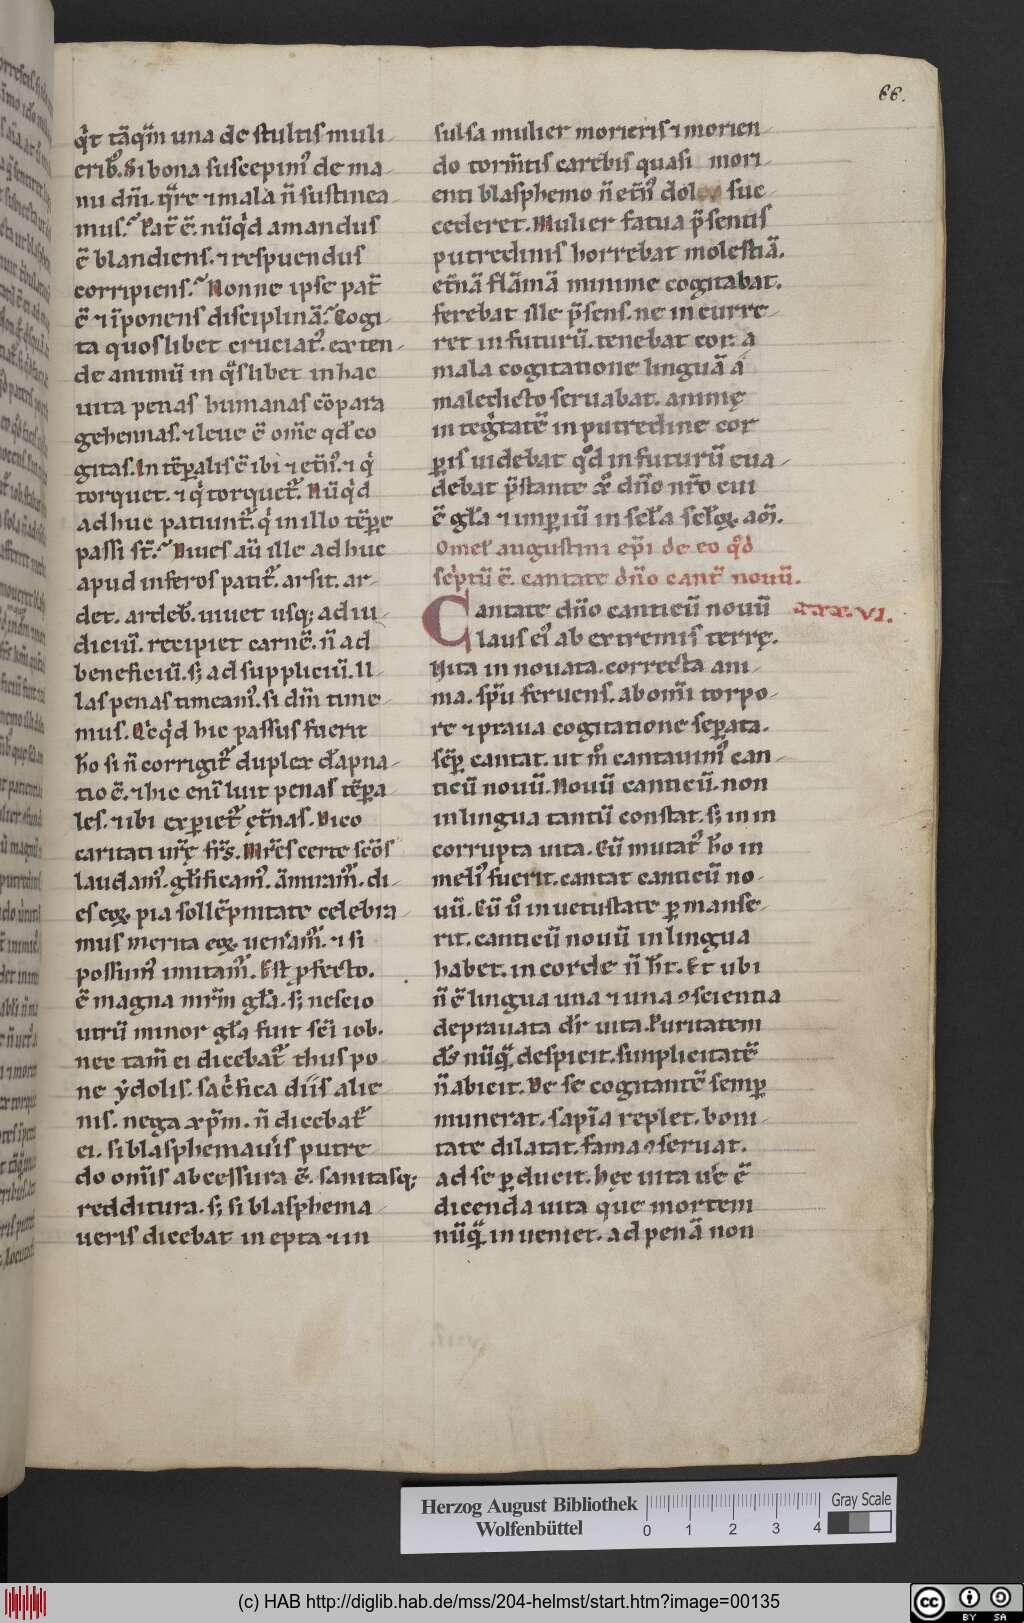 66.
q̇t tāq̄m una de stultis muli-
erib᷒. Si bona suscepim᷒ de ma
nu dn̄i. q̄re ⁊ mala n̄ sustinea-
mus. Pat̄ ē. nūq̇d amandus
ē blandiens. ⁊ respuendus
corripiens. Nonne ipse pat̄
ē ⁊ īponens disciplinā. Cogi
ta quoslibet cruciat᷒. exten-
de animū in q̄slibet in hac
uita penas humanas cōpara
gehennas. ⁊ leue ē om̄e qd̄ co
gitas. In tēꝑalis ē ibi ⁊ etn̄᷒. ⁊ q̇
torquet. ⁊ q̇ torquet̄. Nūq̇d
adhuc patiunt̄. q̇ in illo tēꝑe
passi st̄. Diues aū ille adhuc
apud inferos patit̄. arsit. ar-
det. ardeb̄. uiuet usq; ad iu-
diciū. recipiet carnē. n̄ ad
beneficiū. s; ad suppliciū. Il-
las penas timeam᷒. si dm̄ time-
mus. Q̇cq̇d hic passus fuerit
h̄o si n̄ corrigit̄ duplex dāpna-
tio ē. ⁊ hic eni luit penas tēꝑa-
les. ⁊ ibi exꝑiet̄ ęt̄nas. Dico
caritati ur̄ę fr̄s. Mr̄es certe sc̄os
laudam᷒. gl̄ificam᷒. āmiram̄. di-
es eoꝝ pia sollēpnitate celebra-
mus merita eoꝝ uen̄am̄. ⁊ si
possum᷒ imitam̄. Est ꝓfecto.
ē magna mr̄m gl̄a. s; nescio
utrū minor gl̄a fuit sc̄i iob.
nec tam̄ ei dicebat̄ thus po
ne ẏdolis. sac̄fica diis alie-
nis. nega xp̄m. n̄ dicebat̄
ei. si blasphemau̓is putre-
do om̄is abcessura ē. sanitasq;
redditura. s; si blasphema
ueris dicebat in epta ⁊ in
sulsa mulier morieris ⁊ morien-
do torm̄tis carebis quasi mori-
enti blasphemo n̄ etn̄᷒ dol suc-
cederet. Mulier fatua p̄sentis
putredinis horrebat molestiā.
et̄nā flāmā minime cogitabat.
ferebat ille p̄sens. ne incurre-
ret in futurū. tenebat cor a
mala cogitatione linguā á
maledicto seruabat. animę
integ̓tatē in putredine cor
ꝑis uidebat qd̊ in futurū eua-
debat p̄stante x dn̄o nr̄o cui
ē gl̄a ⁊ imperiū in scl̄a scl̄oꝝ. am̄.
Omel̄ augustini ep̄i de eo qd̊
sc̓ptū ē. cantate dn̄o cant̄ nouū.
Cantate dn̄o canticū nouū xxxvi.
Laus ei᷒ ab extremis terrę.
Uita innouata. correcta ani-
ma. sp̄u feruens. ab om̄i torpo-
re ⁊ praua cogitatione seꝑata.
sēꝑ cantat. ut m̊ cantauim᷒ can-
ticū nouū. Nouū canticū. non
in lingua tantū constat. s; in in
corrupta uita. Cū mutat᷒ h̄o in
meli᷒ fuerit. cantat canticū no-
uū. Cū ů in uetustate ꝑmanse-
rit. canticū nouū in lingua
habet. in corde n̄ h̄t. Et ubi
n̄ ē lingua una ⁊ una ꝯscientia
deprauata dr̄ uita. Puritatem
ds̄ nūq̄ despicit. simplicitatē
n̄ abicit. De se cogitantē semꝑ
munerat. sapīa replet. boni-
tate dilatat. fama ꝯseruat.
ad se ꝑducit. hęc uita ue ē
dicenda uita que mortem
nūq̄ inueniet. ad penā non
Herzog August Bibliothek
Wolfenbüttel
0 1 2 3 4
Gray Scale
(c) HAB http://diglib.hab.de/mss/204-helmst/start.htm?image=00135
cc BY SA